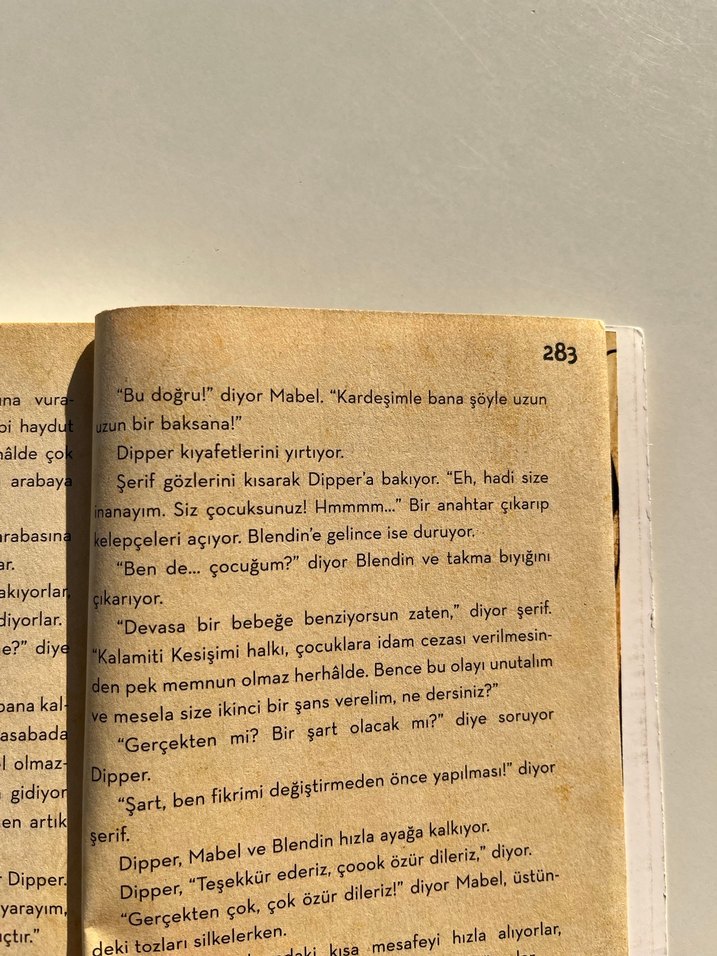 una vura-
bi haydut
hâlde çok
arabaya
arabasına
ar.
akıyorlar,
diyorlar.
ne?" diye
bana kal-
kasabada
el olmaz-
gidiyor
en artık
r Dipper.
yarayım,
uçtır."
283
"Bu doğru!" diyor Mabel. "Kardeşimle bana şöyle uzun
uzun bir baksana!"
Dipper kıyafetlerini yırtıyor.
Şerif gözlerini kısarak Dipper'a bakıyor. "Eh, hadi size
inanayım. Siz çocuksunuz! Hmmmm..." Bir anahtar çıkarıp
kelepçeleri açıyor. Blendin'e gelince ise duruyor.
"Ben de... çocuğum?" diyor Blendin ve takma bıyığını
çıkarıyor.
"Devasa bir bebeğe benziyorsun zaten," diyor şerif.
"Kalamiti Kesişimi halkı, çocuklara idam cezası verilmesin-
den pek memnun olmaz herhâlde. Bence bu olayı unutalım
ve mesela size ikinci bir şans verelim, ne dersiniz?"
"Gerçekten mi? Bir şart olacak mı?" diye soruyor
Dipper.
"Şart, ben fikrimi değiştirmeden önce yapılması!" diyor
şerif.
Dipper, Mabel ve Blendin hızla ayağa kalkıyor.
Dipper, "Teşekkür ederiz, çoook özür dileriz," diyor.
"Gerçekten çok, çok özür dileriz!" diyor Mabel, üstün-
deki tozları silkelerken.
kısa mesafeyi hızla alıyorlar,